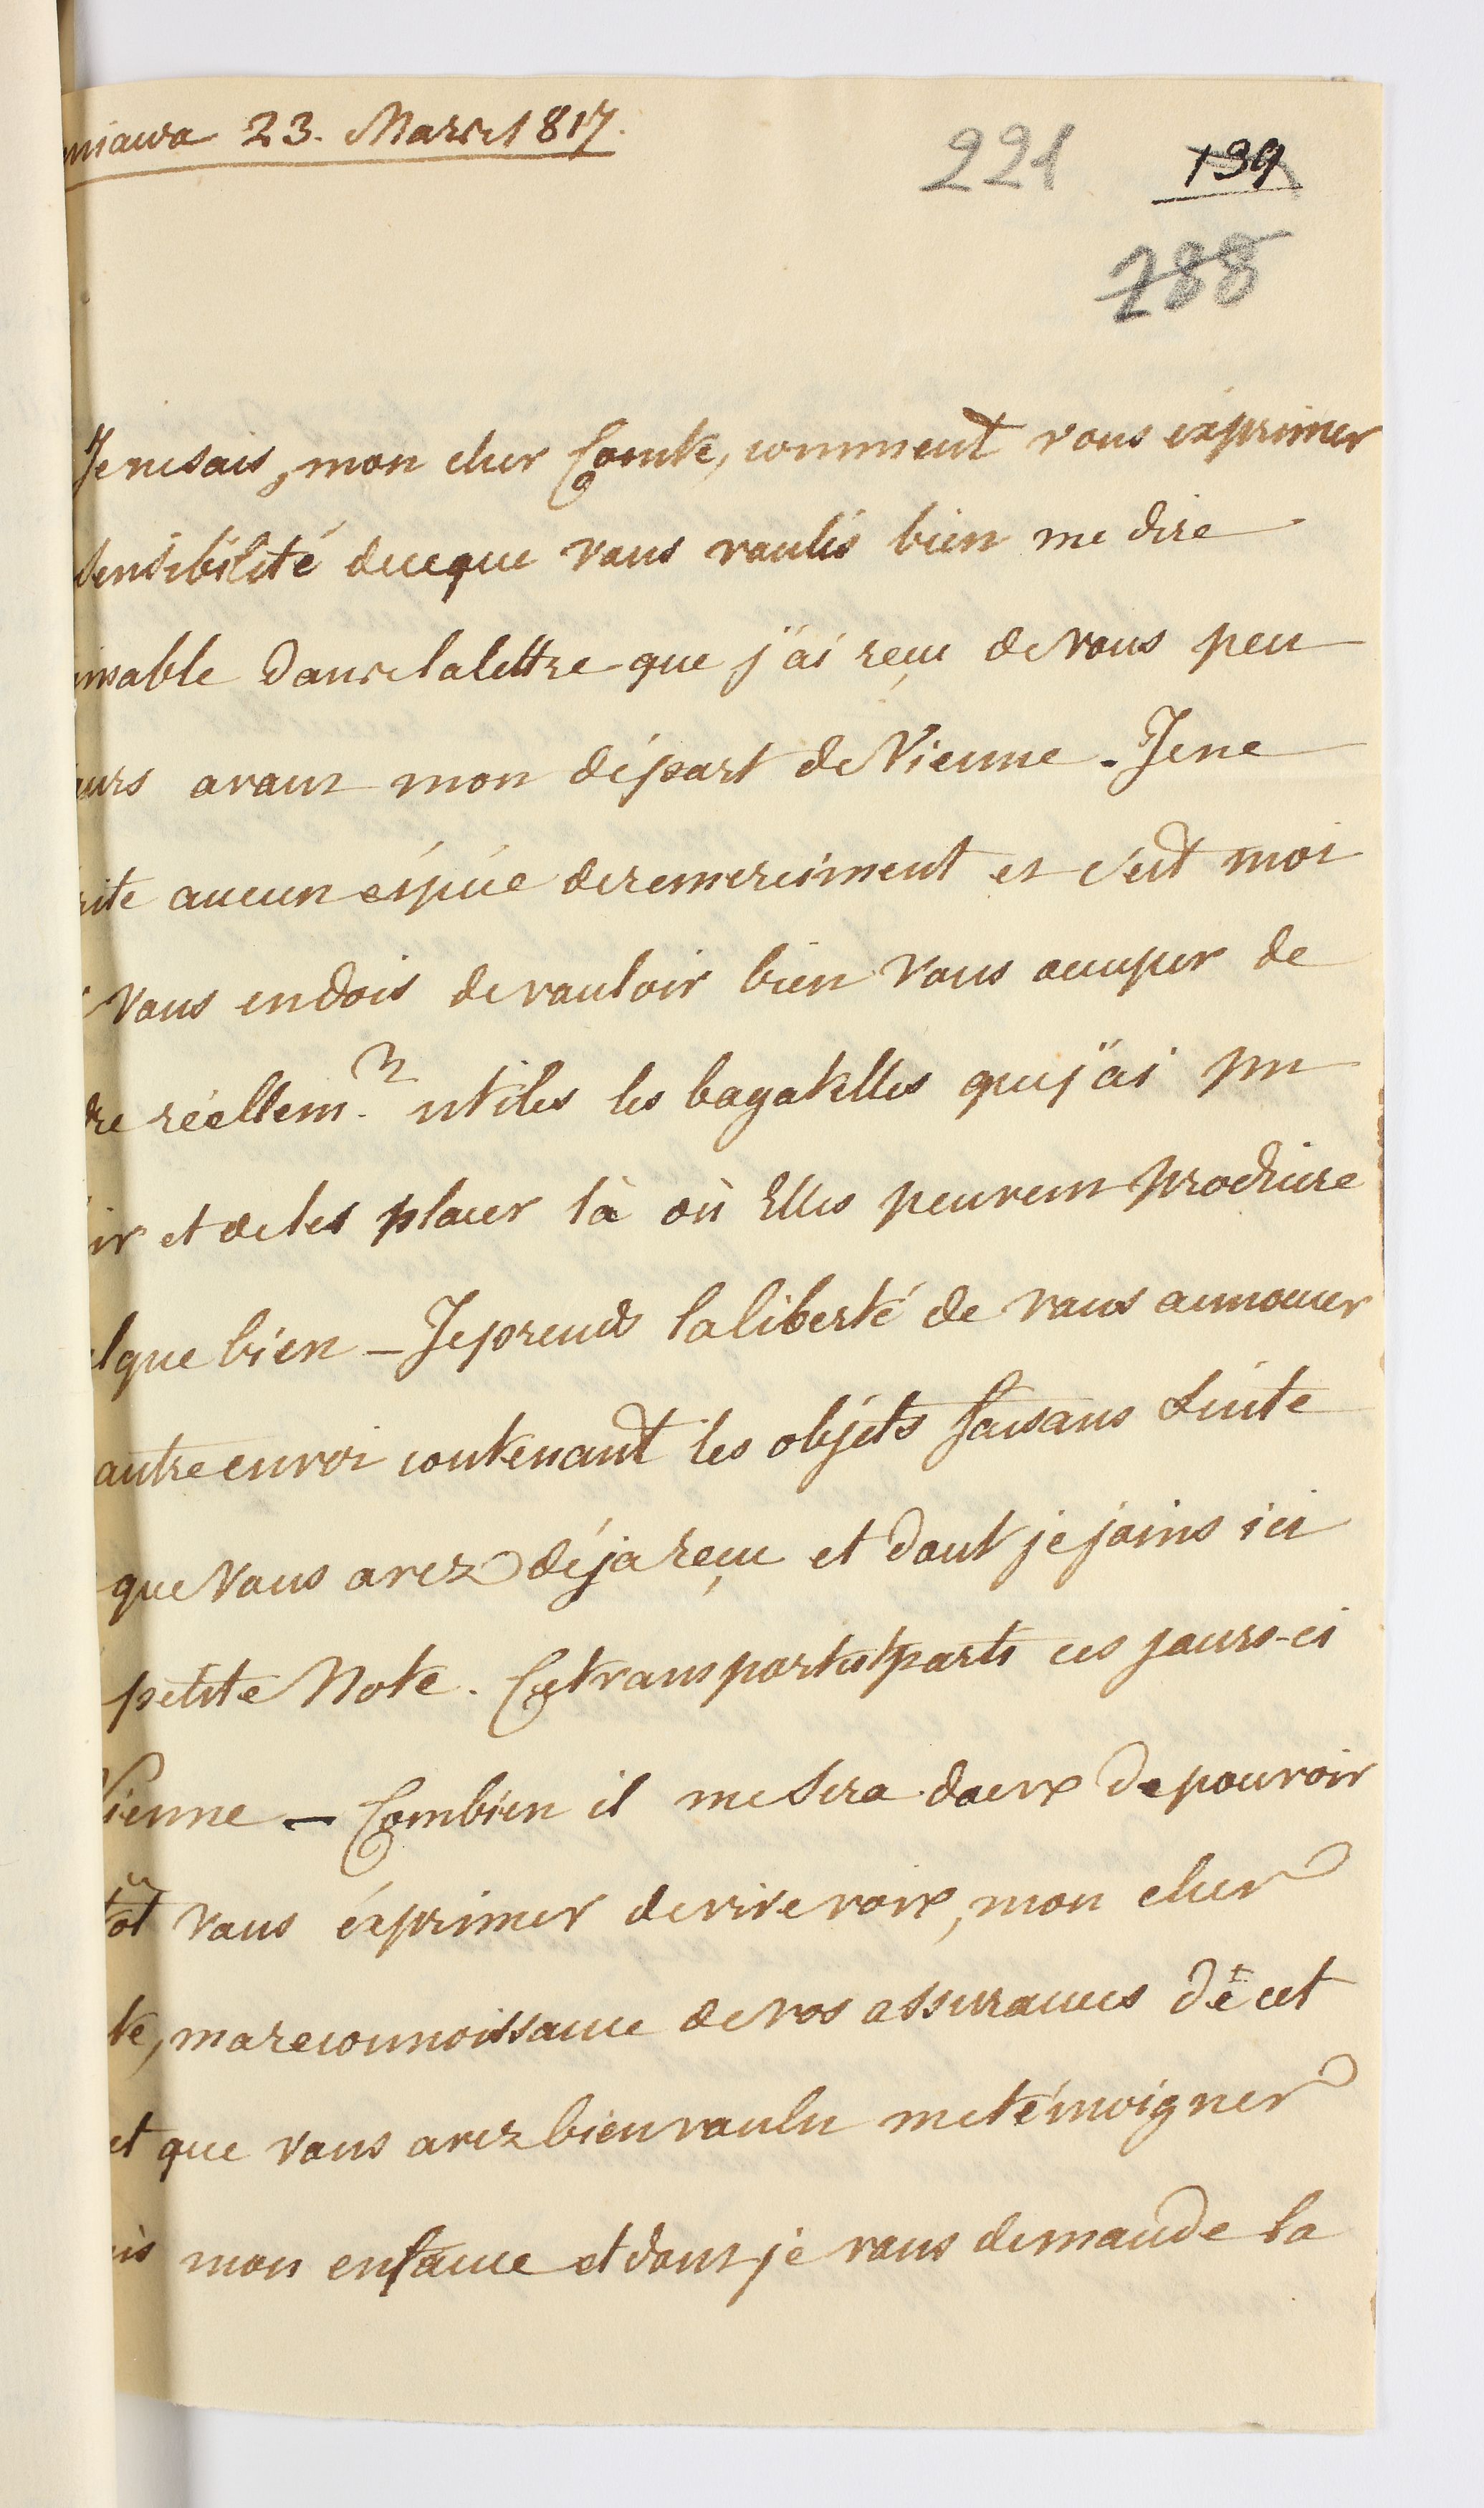 niawa 23. Mars 1817.
221 199
188
Je ne sais, mon cher Comte, comment vous exprimer
sensibilité de ce que vous voulés bien me dire
imable dans la lettre que j'ai reçu de vous peu
ours avant mon départ de Vienne. Je ne
rite aucun éspéce de remerciment et c'est moi
vous en dois de vouloir bien vous occuper de
dre réellem.t utiles les bagatelles que j'ai pu
ir et de les placer là où Elles peuvent produire
lque bien – Je prends la liberté de vous annoncer
autre envoi contenant les objéts faisans suite
que vous avez déja reçu et dont je joins ici
petite Note. Ce transport est parti ces jours-ci
Vienne – Combien il me sera doux de pouvoir
tôt vous éxprimer de vive voix, mon cher
te, ma reconnoissance de vos assurances de cet
et que vous avez bien voulu me témoigner
is mon enfance et dont je vous demande la